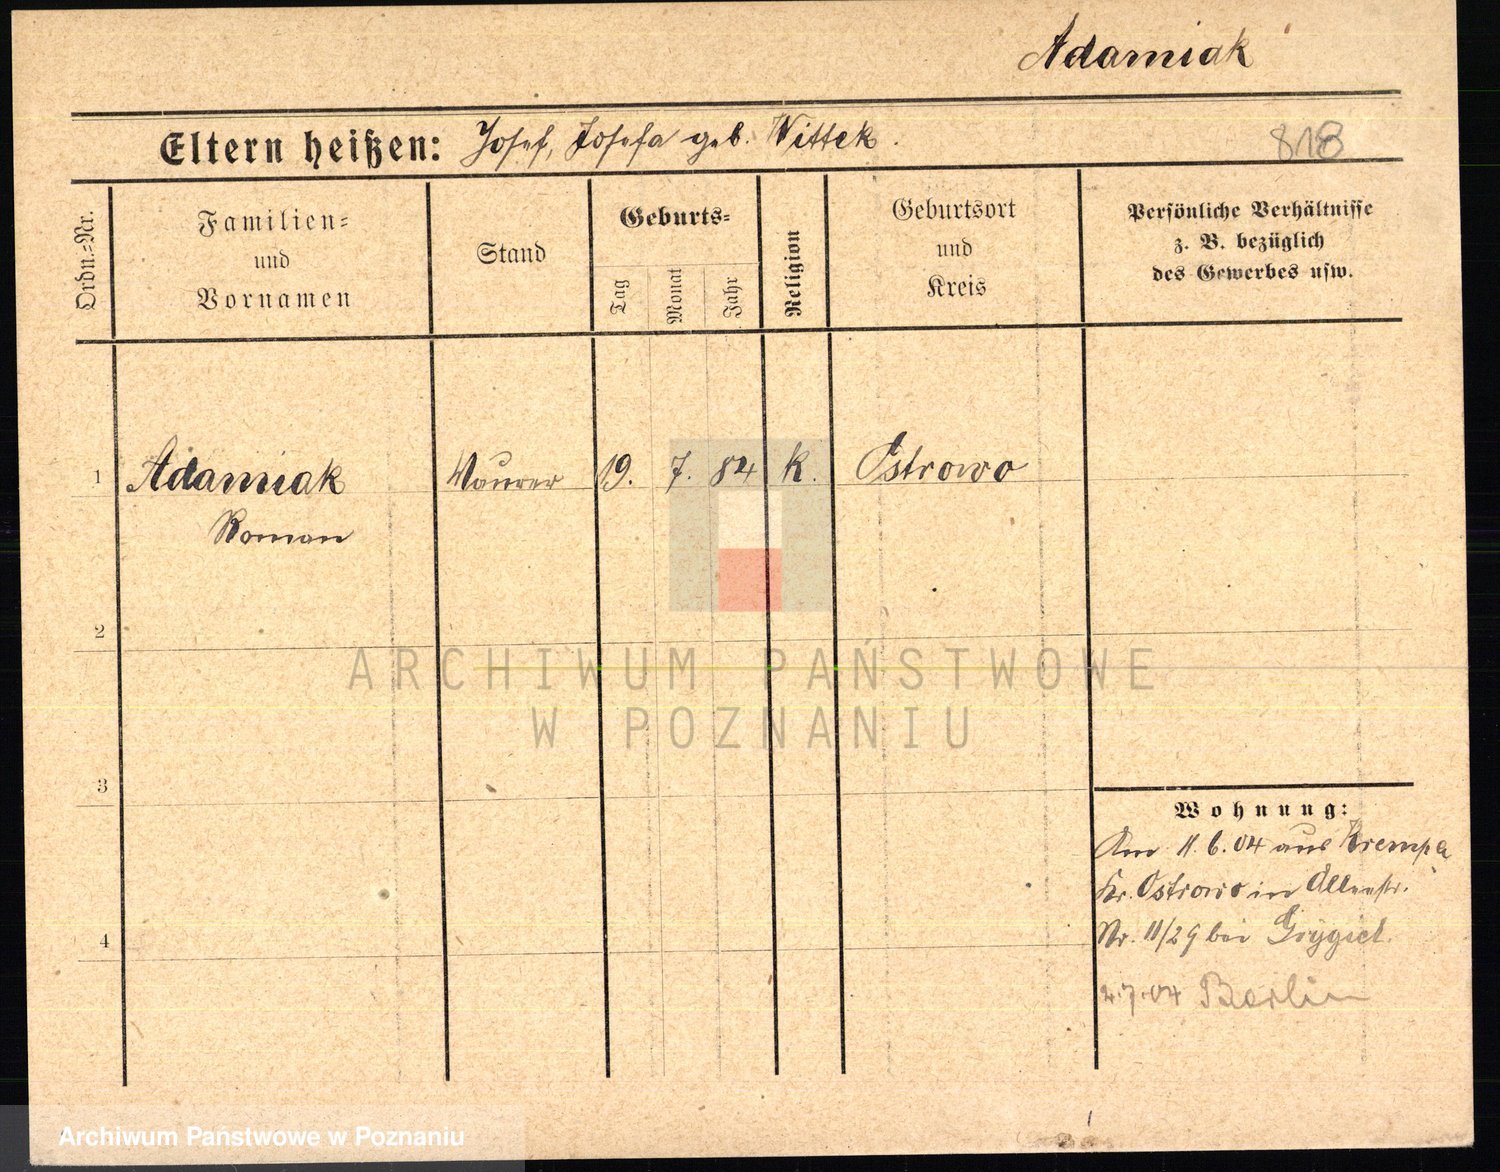 Adamiak
Eltern heißen: Josef, Josefa geb. Wittek.
818
Ordn.=Nr.
Familien=
und
Vornamen
Stand
Geburts=
Tag
Monat
Jahr
Religion
Geburtsort
und
Kreis
Persönliche Verhältnisse
z. B. bezüglich
des Gewerbes usw.
1 Adamiak Maurer 19. 7. 84 K. Ostrowo
Roman
2
ARCHIWUM PAŃSTWOWE
W POZNANIU
3
Wohnung:
Am 11.6.04 aus Krempa
Kr. Ostrowo in Allerstr.
Nr. 11/29 bei Grygiel.
4
2.7.04 Berlin
Archiwum Państwowe w Poznaniu